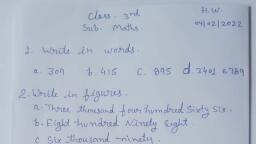 Class. 3rd
H.W.
Sub. Maths.
04/02/2022
1. Write in words.
a. 309 b. 415 c. 895 d. 3401 e 789
2. Write in figures.
a. Three thousand four hundred Sixty Six.
b. Eight hundred Ninety Eight
c Six thousand ninety.